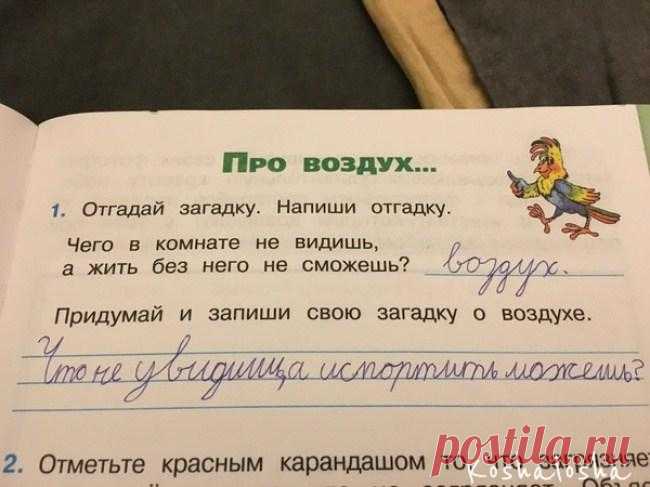 Про воздух...
1. Отгадай загадку. Напиши отгадку.
Чего в комнате не видишь,
а жить без него не сможешь? воздух.
Придумай и запиши свою загадку о воздухе.
Что не увидиш а испортить можешь?
2. Отметьте красным карандашом то, что загрязняе
postila.ru
KoshaTosha